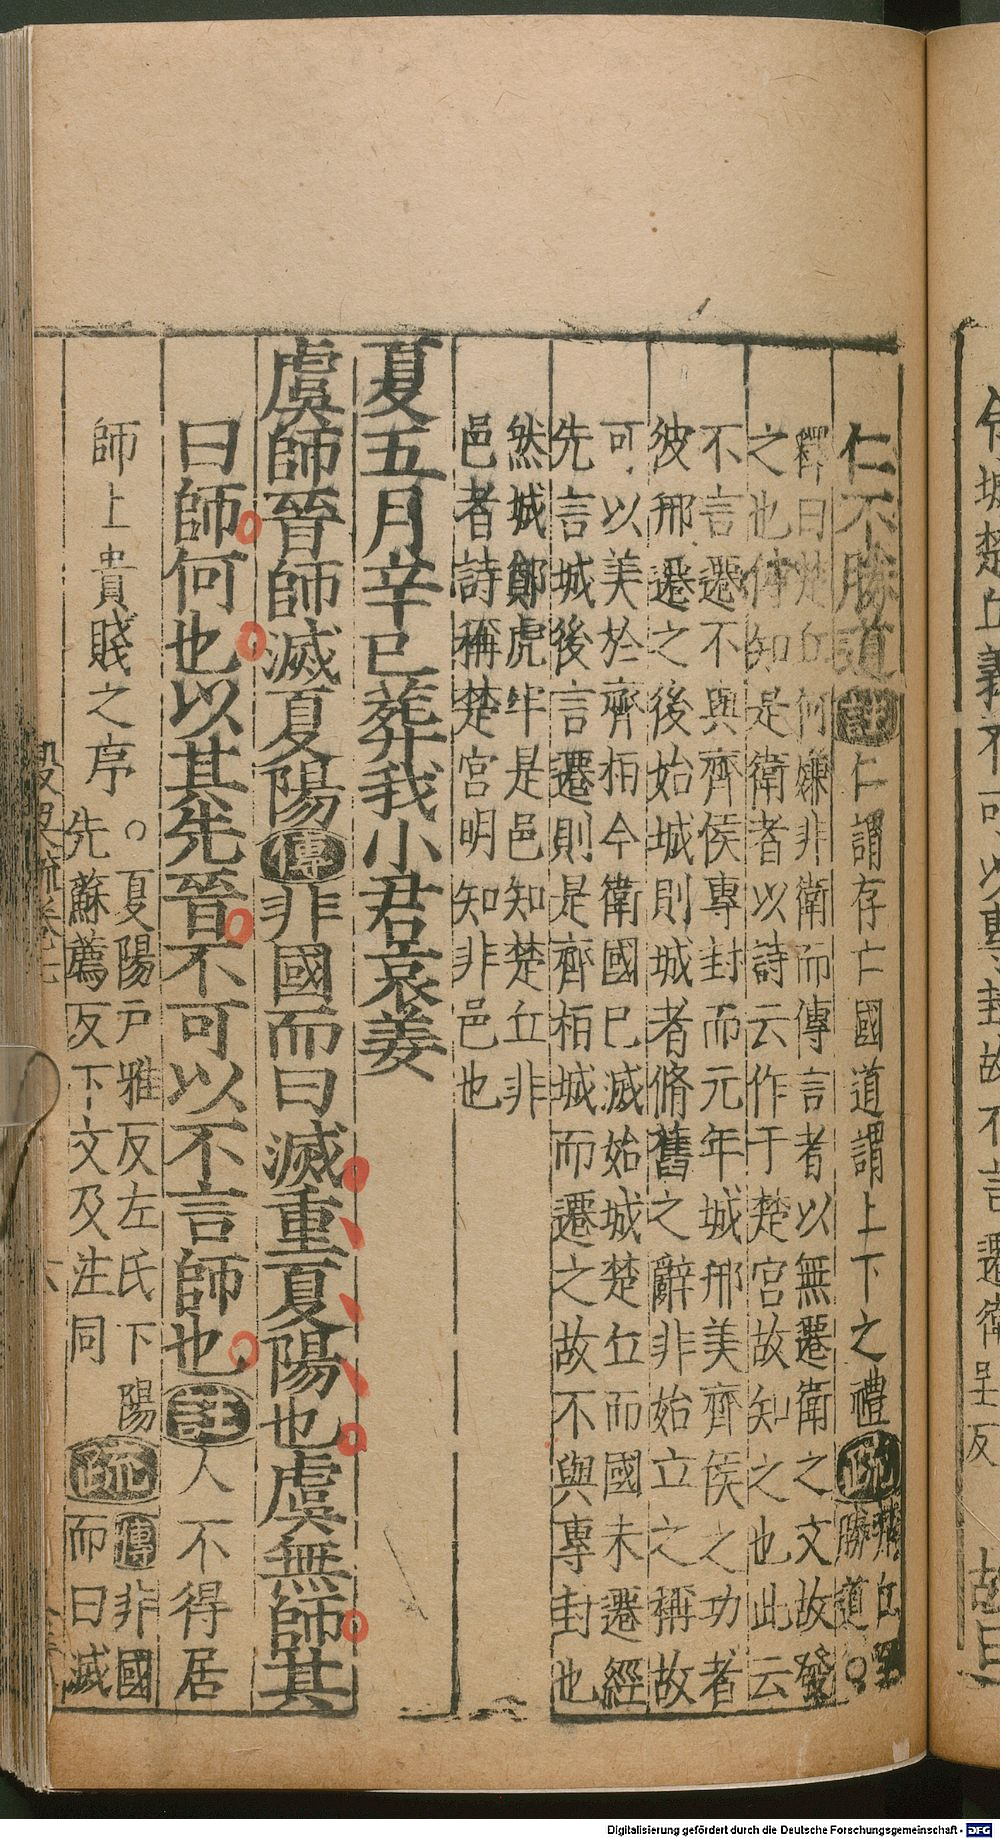 仁不勝道註仁謂存亡國道謂上下之禮疏
勝道○
釋曰楚丘何嫌非衛而傳言者以無遷衛之文故發
之也傳知是衛者以詩云作于楚宮故知之也此云
不言遷不與齊侯專封而元年城邢美齊侯之功者
彼邢遷之後始城則城者脩舊之辭非始立之稱故
可以美於齊桓今衛國已滅始城楚丘而國未遷經
先言城後言遷則是齊桓城而遷之故不與專封也
然城鄭虎牢是邑知楚丘非
邑者詩稱楚宮明知非邑也
夏五月辛巳葬我小君哀姜
虞師晉師滅夏陽傳非國而曰滅重夏陽也虞無師其
曰師何也以其先晉不可以不言師也註人不得居
師上貴賤之序○夏陽戶雅反左氏下陽
先蘇薦反下文及注同疏傳非國
而曰滅